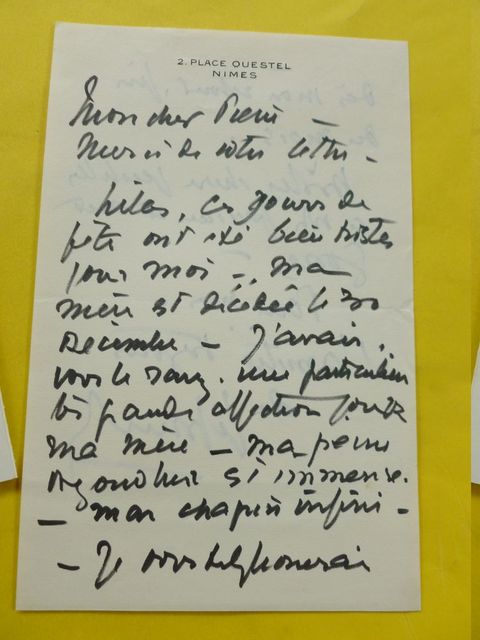 2. PLACE QUESTEL
NIMES
Mon cher Pierre —
Merci de votre lettre —
hélas, ces jours de
fête ont été bien tristes
pour moi -, ma
mère est décédée le 30
Décembre — J'avais,
vous le savez, une particulière
très grande affection pour
ma mère — ma peine
aujourd'hui est immense.
— mon chagrin infini —
— Je vous téléphonerai